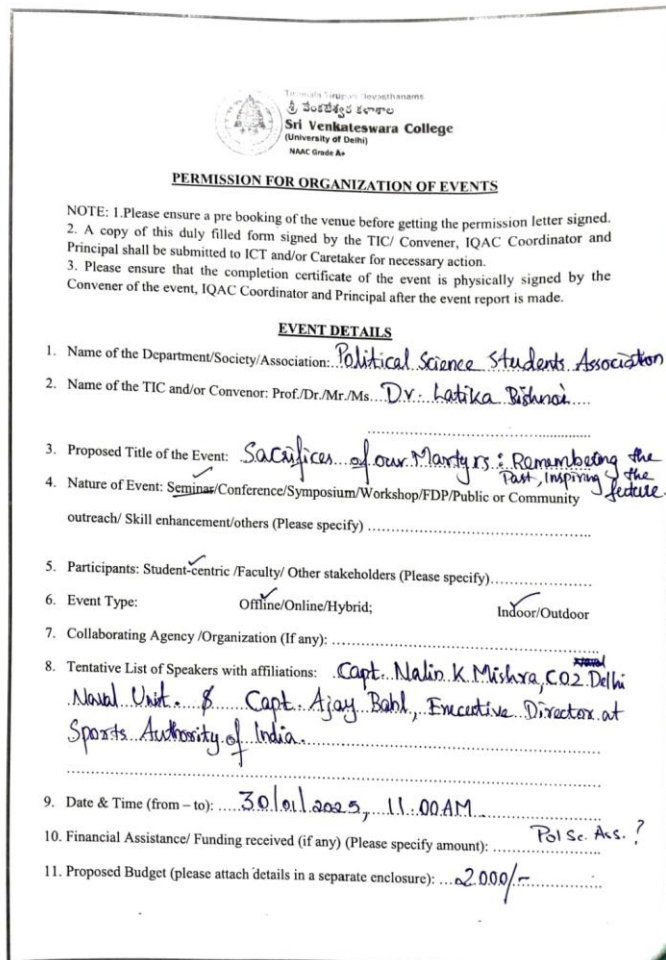 Tirumala Tirupati Devasthanams
శ్రీ వేంకటేశ్వర కళాశాల
Sri Venkateswara College
(University of Delhi)
NAAC Grade A+
PERMISSION FOR ORGANIZATION OF EVENTS
NOTE: 1.Please ensure a pre booking of the venue before getting the permission letter signed.
2. A copy of this duly filled form signed by the TIC/ Convener, IQAC Coordinator and
Principal shall be submitted to ICT and/or Caretaker for necessary action.
3. Please ensure that the completion certificate of the event is physically signed by the
Convener of the event, IQAC Coordinator and Principal after the event report is made.
EVENT DETAILS
1. Name of the Department/Society/Association: Political Science Students Association
2. Name of the TIC and/or Convenor: Prof./Dr./Mr./Ms. Dr. Latika Bishnoi
3. Proposed Title of the Event: Sacrifices of our Martyrs : Remembering the
Past, Inspiring the
4. Nature of Event: Seminar/Conference/Symposium/Workshop/FDP/Public or Community
outreach/ Skill enhancement/others (Please specify)
5. Participants: Student-centric /Faculty/ Other stakeholders (Please specify)
6. Event Type: Offline/Online/Hybrid; Indoor/Outdoor
7. Collaborating Agency /Organization (If any):
8. Tentative List of Speakers with affiliations: Capt. Nalin K Mishra, CO2 Delhi
Naval Unit. & Capt. Ajay Bahl, Executive Director at
Sports Authority of India.
9. Date & Time (from – to): 30/01/2025, 11.00AM
10. Financial Assistance/ Funding received (if any) (Please specify amount): Pol Sc. Ass. ?
11. Proposed Budget (please attach details in a separate enclosure): 2000/-